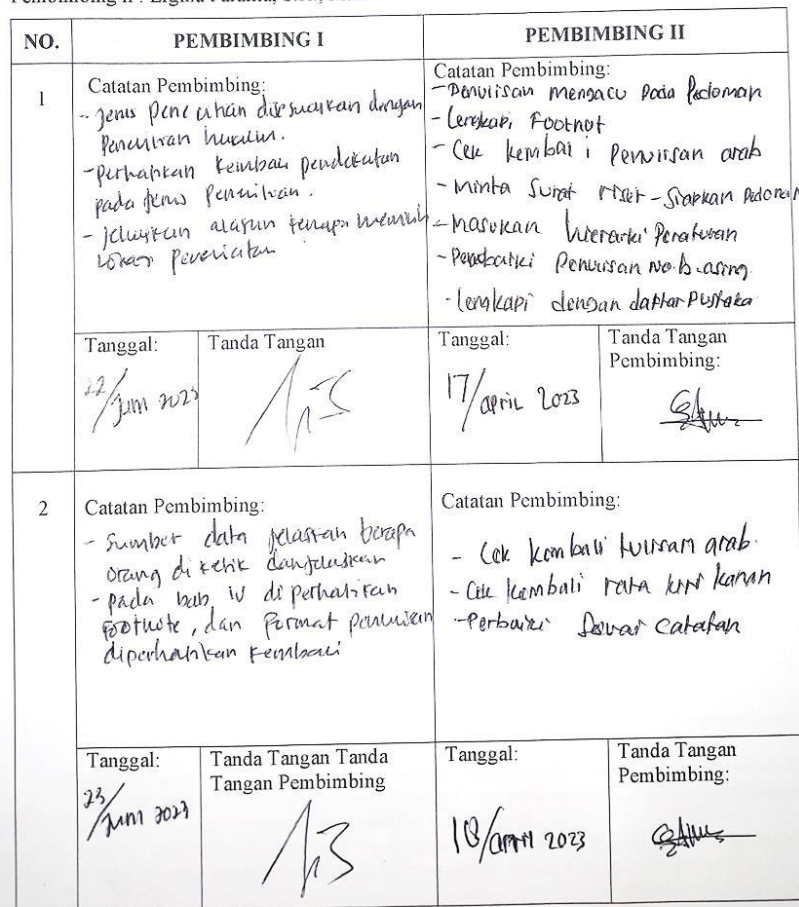 NO. PEMBIMBING I PEMBIMBING II
1
Catatan Pembimbing:
- Jenis penelitian disesuaikan dengan
Penelitian hukum.
- Perhatikan kembali pendekatan
pada jenis Penelitian.
- Jelaskan alasan kenapa memilih
lokasi penelitian
Catatan Pembimbing:
- Penulisan mengacu pada Pedoman
- Lengkapi Footnot
- Cek kembali Penulisan arab
- Minta Surat riset - Siapkan Pedoman
- Masukan hierarki Peraturan
- Perbaiki Penulisan asing
- Lengkapi dengan daftar Pustaka
Tanggal: Tanda Tangan
22/Juni 2023
Tanggal: Tanda Tangan
Pembimbing:
17/april 2023
2
Catatan Pembimbing:
- Sumber data jelaskan berapa
orang di ketik dan jelaskan
- pada bab iv di perhatikan
footnote, dan format penulisan
diperhatikan kembali
Catatan Pembimbing:
- Cek kembali tulisan arab.
- Cek kembali rata kiri kanan
- Perbaiki sesuai catatan
Tanggal: Tanda Tangan Tanda
Tangan Pembimbing
23/Juni 2023
Tanggal: Tanda Tangan
Pembimbing:
18/april 2023